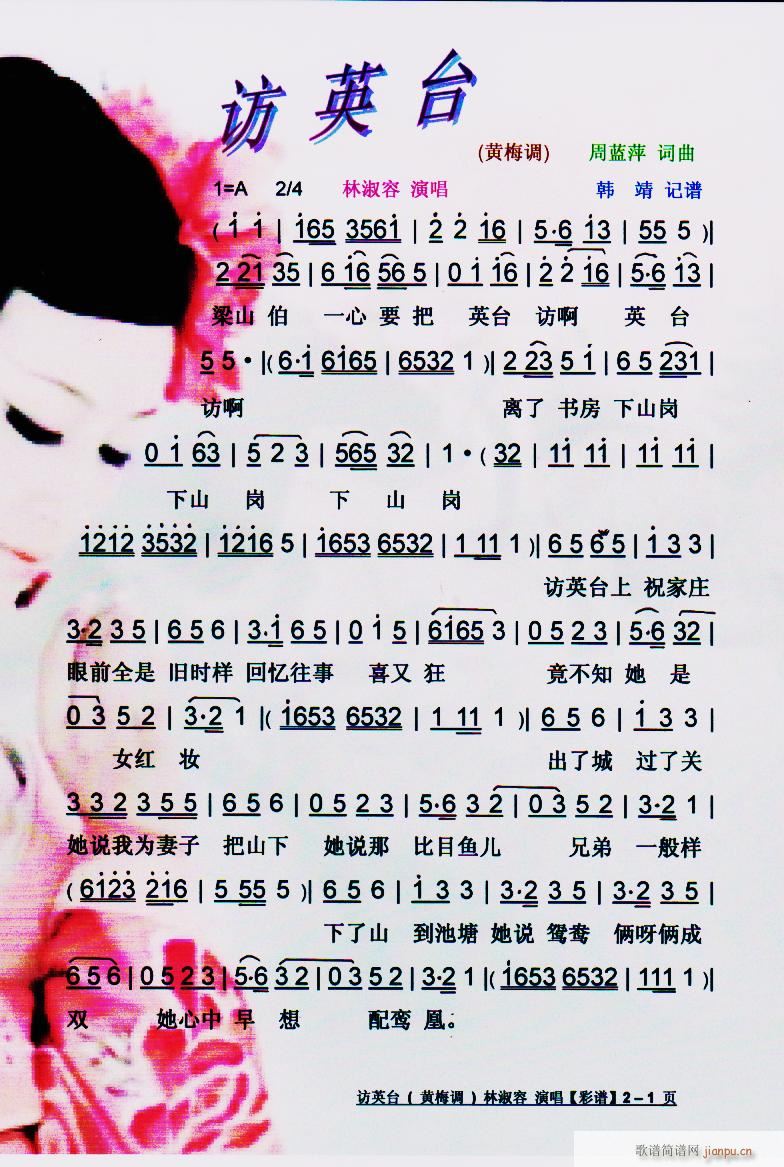 访英台
(黄梅调) 周蓝萍 词曲
1=A 2/4 林淑容 演唱 韩 靖 记谱
( i i | i65 356i | 2 2 i6 | 5·6 i3 | 55 5 )|
2 21 35 | 6 i6 56 5 | 0 i i6 | 2 2 i6 | 5·6 i3 |
梁山 伯 一心 要 把 英台 访啊 英 台
5 5 · |( 6·i 6i65 | 6532 1 )| 2 23 5 i | 6 5 231 |
访啊 离了 书房 下山岗
0 i 63 | 5 2 3 | 565 32 | 1 · ( 32 | 11 11 | 11 11 |
下山 岗 下 山 岗
1212 3532 | 1216 5 | i653 6532 | 1 11 1 )| 6 5 6 5 | i 3 3 |
访英台上 祝家庄
3·2 3 5 | 6 5 6 | 3·i 6 5 | 0 i 5 | 6i65 3 | 0 5 2 3 | 5·6 32 |
眼前全是 旧时样 回忆往事 喜又 狂 竟不知 她 是
0 3 5 2 | 3·2 1 |( i653 6532 | 1 11 1 )| 6 5 6 | i 3 3 |
女红 妆 出了城 过了关
3 3 2 3 5 5 | 6 5 6 | 0 5 2 3 | 5·6 3 2 | 0 3 5 2 | 3·2 1 |
她说我为妻子 把山下 她说那 比目鱼儿 兄弟 一般样
( 6i23 2i6 | 5 55 5 )| 6 5 6 | i 3 3 | 3·2 3 5 | 3·2 3 5 |
下了山 到池塘 她说 鸳鸯 俩呀俩成
6 5 6 | 0 5 2 3 | 5·6 3 2 | 0 3 5 2 | 3·2 1 |( i653 6532 | 111 1 )|
双 她心中 早 想 配鸾 凰。
访英台 ( 黄梅调 ) 林淑容 演唱【彩谱】2－1 页
歌谱简谱网
jianpu.cn